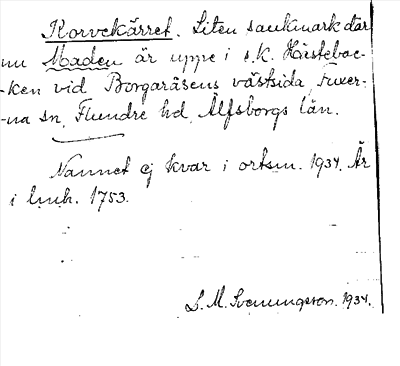 Korvekärret. Liten sankmark där
nu Maden är uppe i s.k. Hästebac-
-ken vid Borgaråsens västsida, Fuxer-
-na sn, Flundre hd, Älfsborgs län.
Namnet ej kvar i ortsm. 1934. Är
i lmh. 1753.
L. M. Svenungsson. 1934.